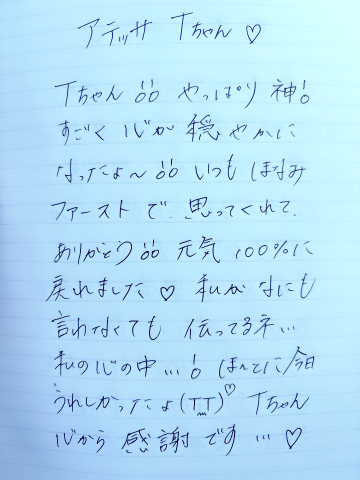 アテッサ Tちゃん ♡
Tちゃん!! やっぱり 神!
すごく 心が 穏やかに
なったよ〜!! いつも ほなみ
ファーストで、思ってくれて、
ありがとう!! 元気 100%に
戻れました♡ 私が なにも
言わなくても 伝ってるネ...
私の心の中...! ほんとに今日
うれしかったよ(TT)♡ Tちゃん
心から 感謝です...♡